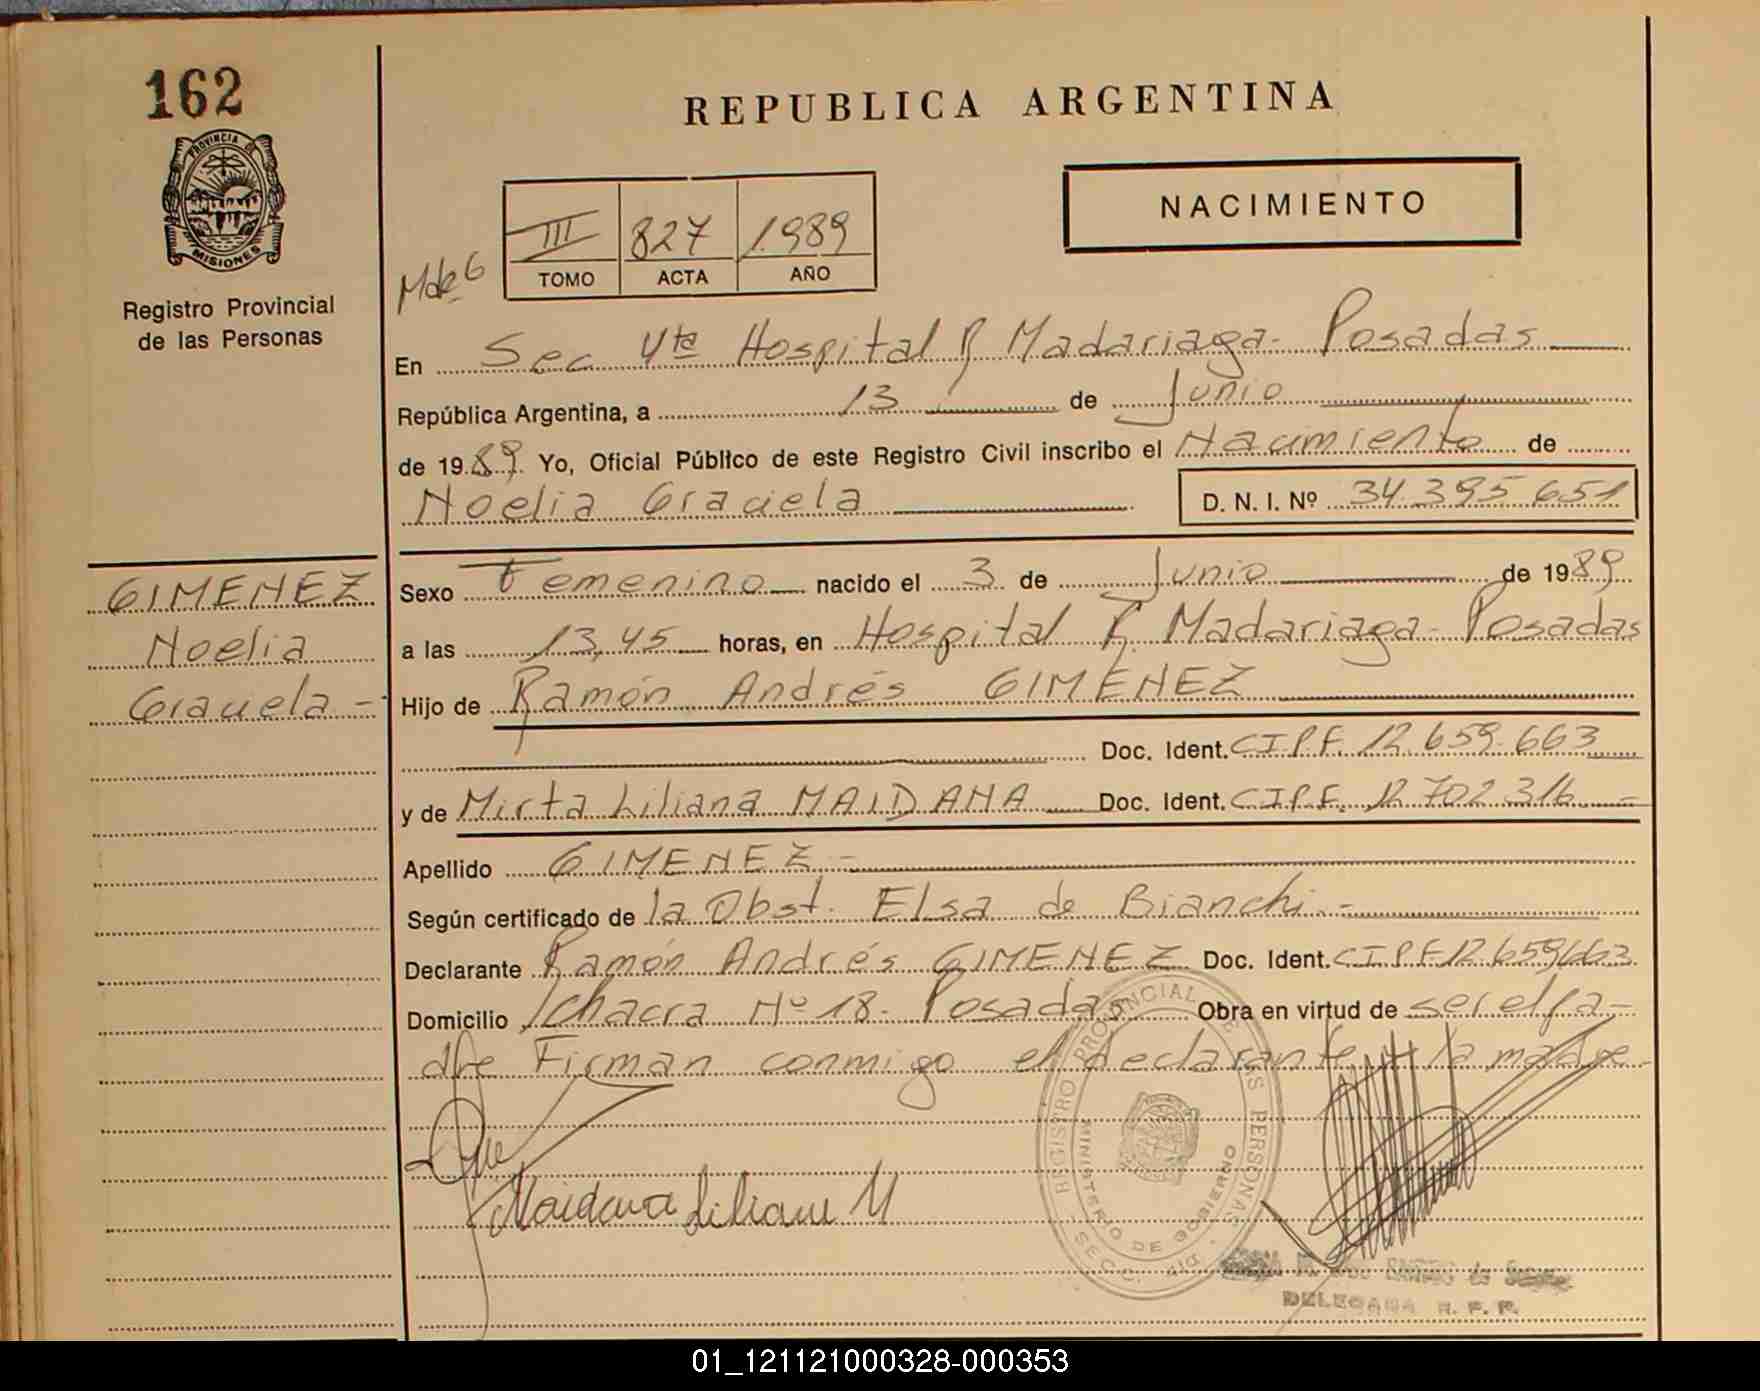 162
PROVINCIA DE
MISIONES
Registro Provincial
de las Personas
REPUBLICA ARGENTINA
NACIMIENTO
III 827 1989
TOMO ACTA AÑO
En Sec 4ta Hospital R Madariaga - Posadas
República Argentina, a 13 de Junio
de 1989 Yo, Oficial Público de este Registro Civil inscribo el Nacimiento de
Noelia Graciela D. N. I. Nº 34.395.651
GIMENEZ
Noelia
Graciela -
Sexo Femenino nacido el 3 de Junio de 1989
a las 13,45 horas, en Hospital R. Madariaga - Posadas
Hijo de Ramón Andrés GIMENEZ
Doc. Ident. CIPF. 12.659.663
y de Mirta Liliana MAIDANA Doc. Ident. CIPF. 12.702.316 -
Apellido GIMENEZ -
Según certificado de la Obst. Elsa de Bianchi. -
Declarante Ramón Andrés GIMENEZ Doc. Ident. CIPF 12.659.663
Domicilio Chacra Nº 18 - Posadas Obra en virtud de ser el pa-
dre Firman conmigo el declarante y la madre -
REGISTRO PROVINCIAL DE LAS PERSONAS
MINISTERIO DE GOBIERNO
Maidana Liliana M
DELEGADA R. P. P.
01_121121000328-000353